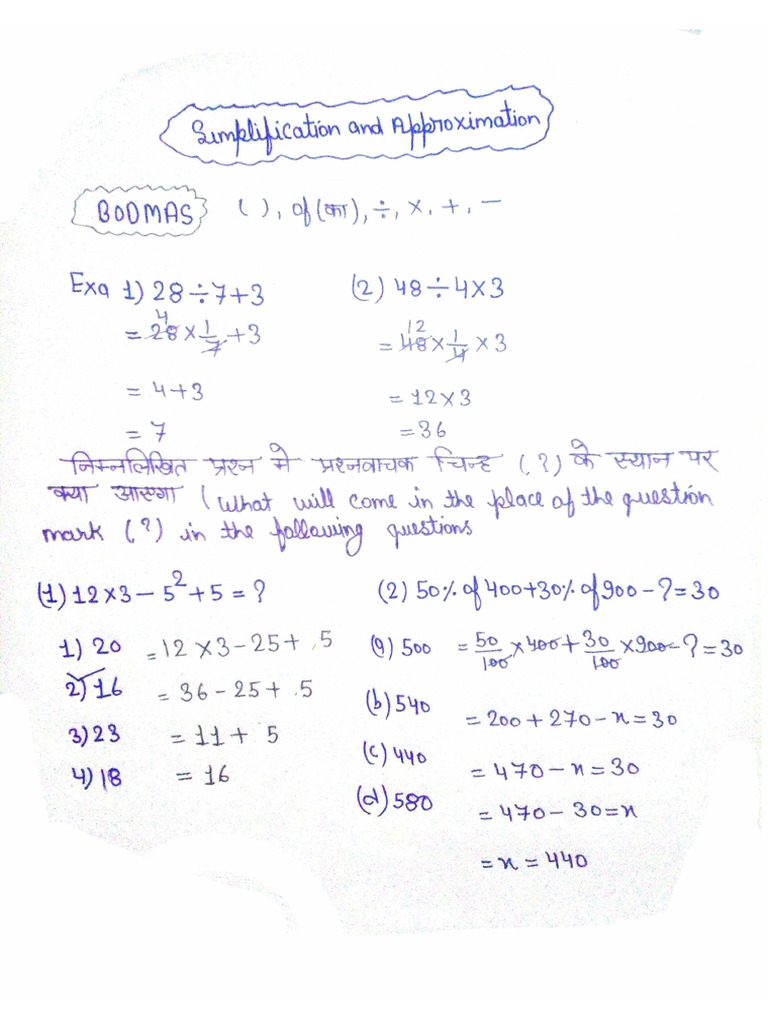 Simplification and Approximation
BODMAS ( ), of (का), ÷, ×, +, −
Exa 1) 28÷7+3
4
= 28 × 1/7 + 3
= 4+3
= 7
(2) 48÷4×3
12
= 48 × 1/4 × 3
= 12×3
= 36
निम्नलिखित प्रश्न मे प्रश्नवाचक चिन्ह (?) के स्थान पर
क्या आएगा (What will come in the place of the question
mark (?) in the following questions
(1) 12×3−5²+5=?
1) 20 = 12×3−25+.5
2) 16 = 36−25+.5
3) 23 = 11+ 5
4) 18 = 16
(2) 50% of 400+30% of 900−?=30
(a) 500 = 50/100 ×400+ 30/100 ×900−?=30
(b) 540
= 200+270−x=30
(c) 440
= 470−x=30
(d) 580
= 470−30=x
= x = 440